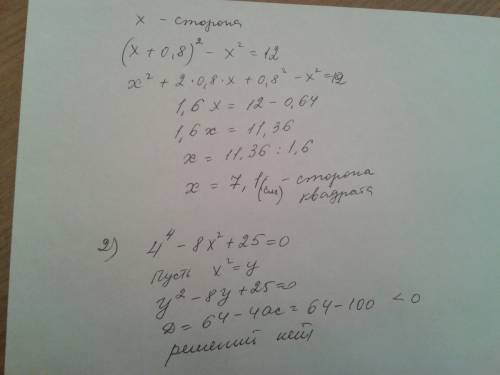 x - сторона
(x + 0,8)² - x² = 12
x² + 2·0,8·x + 0,8² - x² = 12
1,6x = 12 - 0,64
1,6x = 11,36
x = 11,36 : 1,6
x = 7,1 (см) - сторона квадрата
2) 4⁴ - 8x² + 25 = 0
Пусть x² = y
y² - 8y + 25 = 0
D = 64 - 4ac = 64 - 100 < 0
решений нет